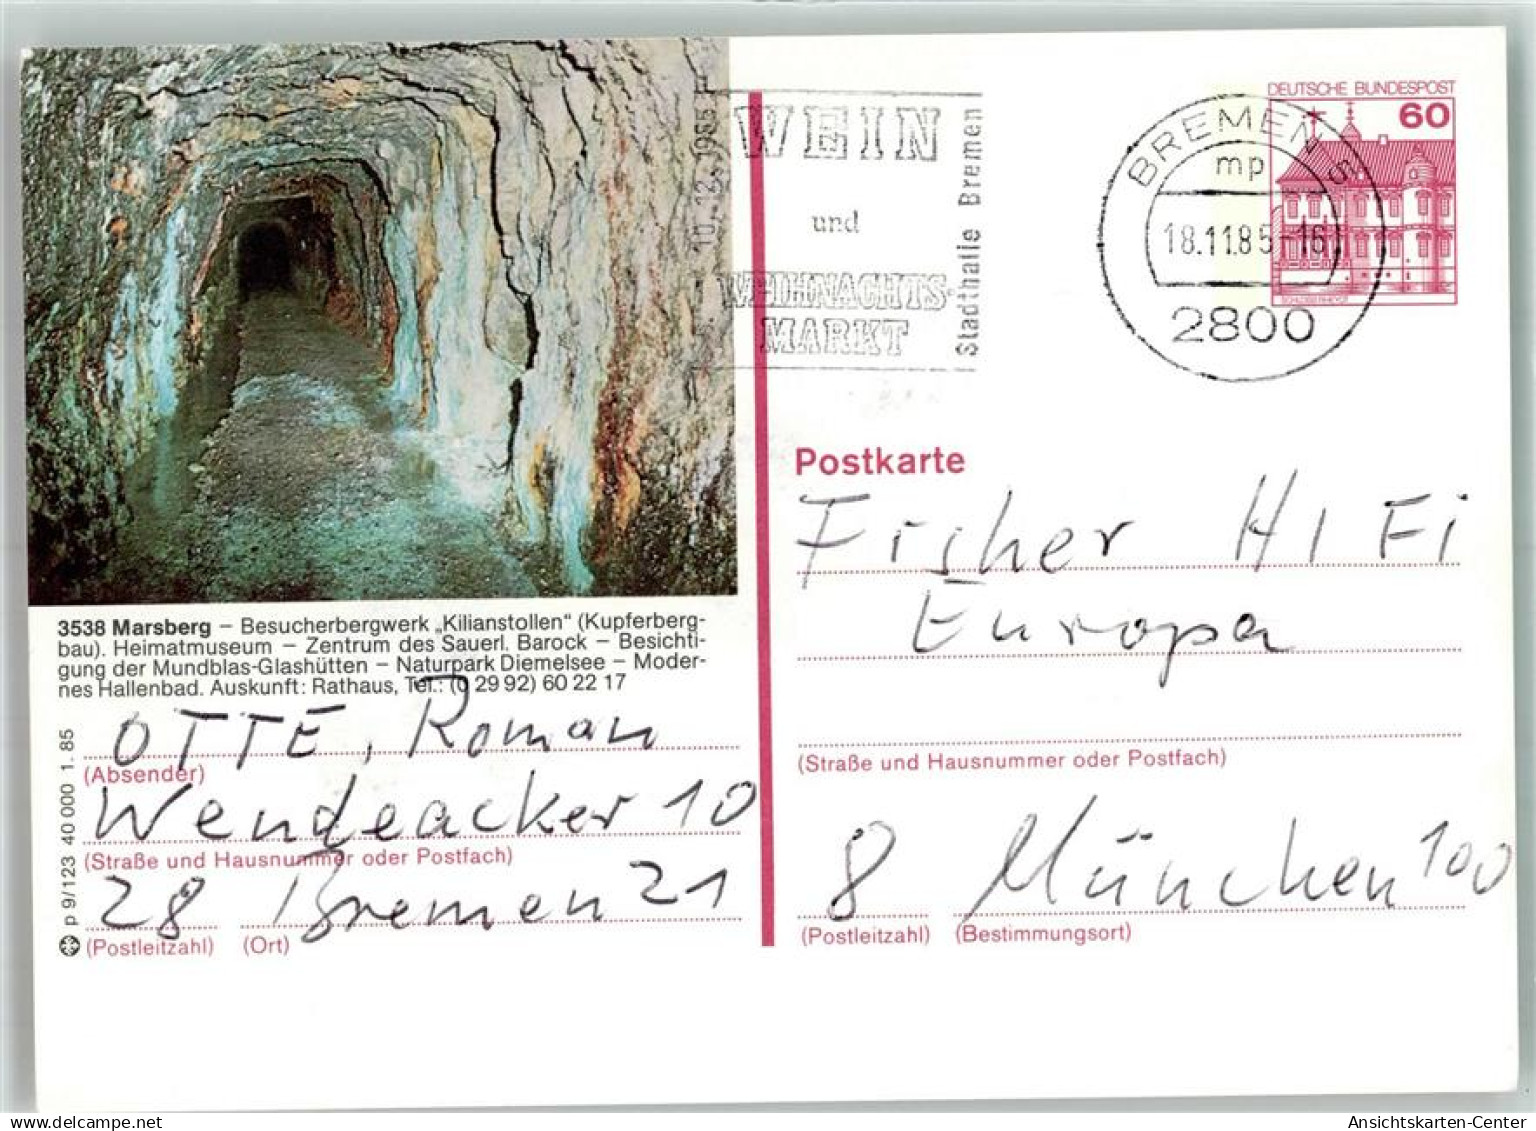 WEIN
und
WEIHNACHTS-
MARKT
Stadthalle Bremen
10.12.1985
DEUTSCHE BUNDESPOST
60
SCHLOSS RHEYDT
BREMEN 5
mp
18.11.85-16
2800
Postkarte
Fischer HI Fi
Europa
(Straße und Hausnummer oder Postfach)
8 München 100
(Postleitzahl) (Bestimmungsort)
3538 Marsberg – Besucherbergwerk „Kilianstollen“ (Kupferberg-
bau). Heimatmuseum – Zentrum des Sauerl. Barock – Besichti-
gung der Mundblas-Glashütten – Naturpark Diemelsee – Moder-
nes Hallenbad. Auskunft: Rathaus, Tel.: (0 29 92) 60 22 17
OTTE, Roman
(Absender)
Wendeacker 10
(Straße und Hausnummer oder Postfach)
28 Bremen 21
(Postleitzahl) (Ort)
p 9/123 40 000 1. 85
Ansichtskarten-Center